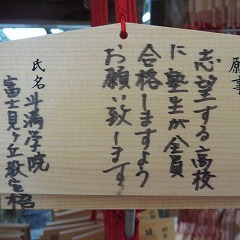 願事
志望する高校
に塾生が全員
合格しますよう
お願い致します
氏名 斗満学院
富士見ヶ丘教室